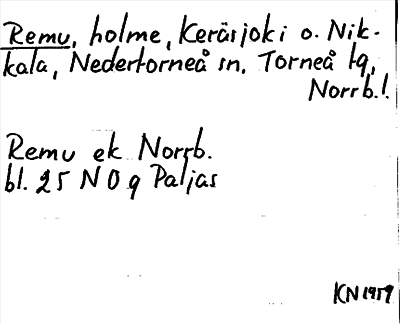 Remu, holme, Keräsjoki o. Nik-
kala, Nedertorneå sn, Torneå tg,
Norrb.l.
Remu ek Norrb.
bl. 25 N O g Paljas
KN 1959